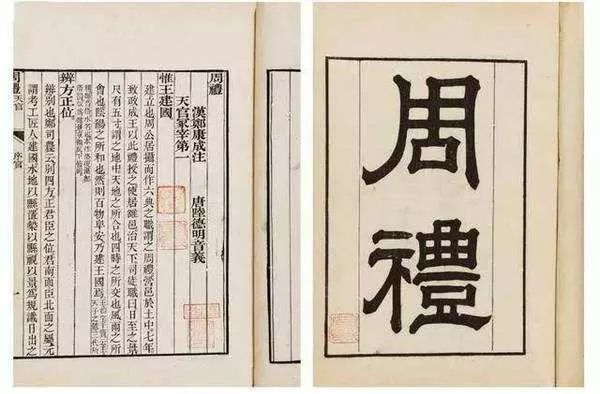 周禮
周禮
漢鄭康成注
唐陸德明音義
天官冢宰第一
惟王建國
建立也周公居攝而作六典之職謂之周禮營邑於土中七年
致政成王以此禮授之使居雒邑治天下司徒職曰日至之景
尺有五寸謂之地中天地之所合也四時之所交也風雨之所
會也陰陽之所和也然則百物阜安乃建王國焉
辨方正位
辨別也鄭司農云別四方正君臣之位君南面臣北面之屬元
謂考工匠人建國水地以縣置槷以縣視以景爲規識日出之
周禮
天官
序官
一